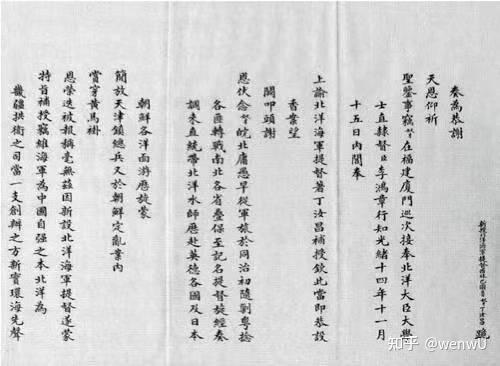 新授北洋海軍提督西林巴圖魯丁汝昌跪
奏為恭謝
天恩仰祈
聖鑒事竊在福建廈門巡次接奉北洋大臣大學
士直隸督臣李鴻章行知光緒十四年十一月
十五日內閣奉
上諭北洋海軍提督著丁汝昌補授欽此當即恭設
香案望
闕叩頭謝
恩伏念皖北庸愚早從軍旅於同治初隨剿粵捻
各匪轉戰南北各省疊保至記名提督旋經奏
調來直統帶北洋水師歷赴英德各國及日本
朝鮮各洋面游歷旋蒙
簡放天津鎮總兵又於朝鮮定亂案內
賞穿黃馬褂
恩榮迭被報稱毫無茲因新設北洋海軍提督遂蒙
特旨補授竊維海軍為中國自強之本北洋為
畿疆拱衛之司當一支創辦之方新實環海先聲
知乎 @wenwU